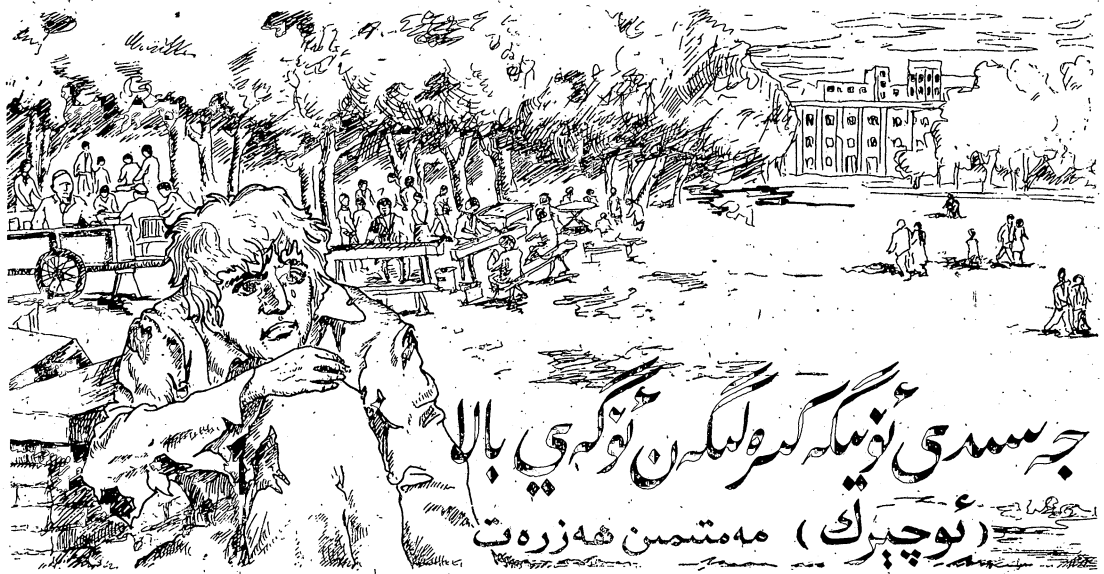 جەسىدى ئۆيىگە كىرەلىگەن ئۆگەي بالا
(ئوچېرك) مەمتىمىن ھەزرەت